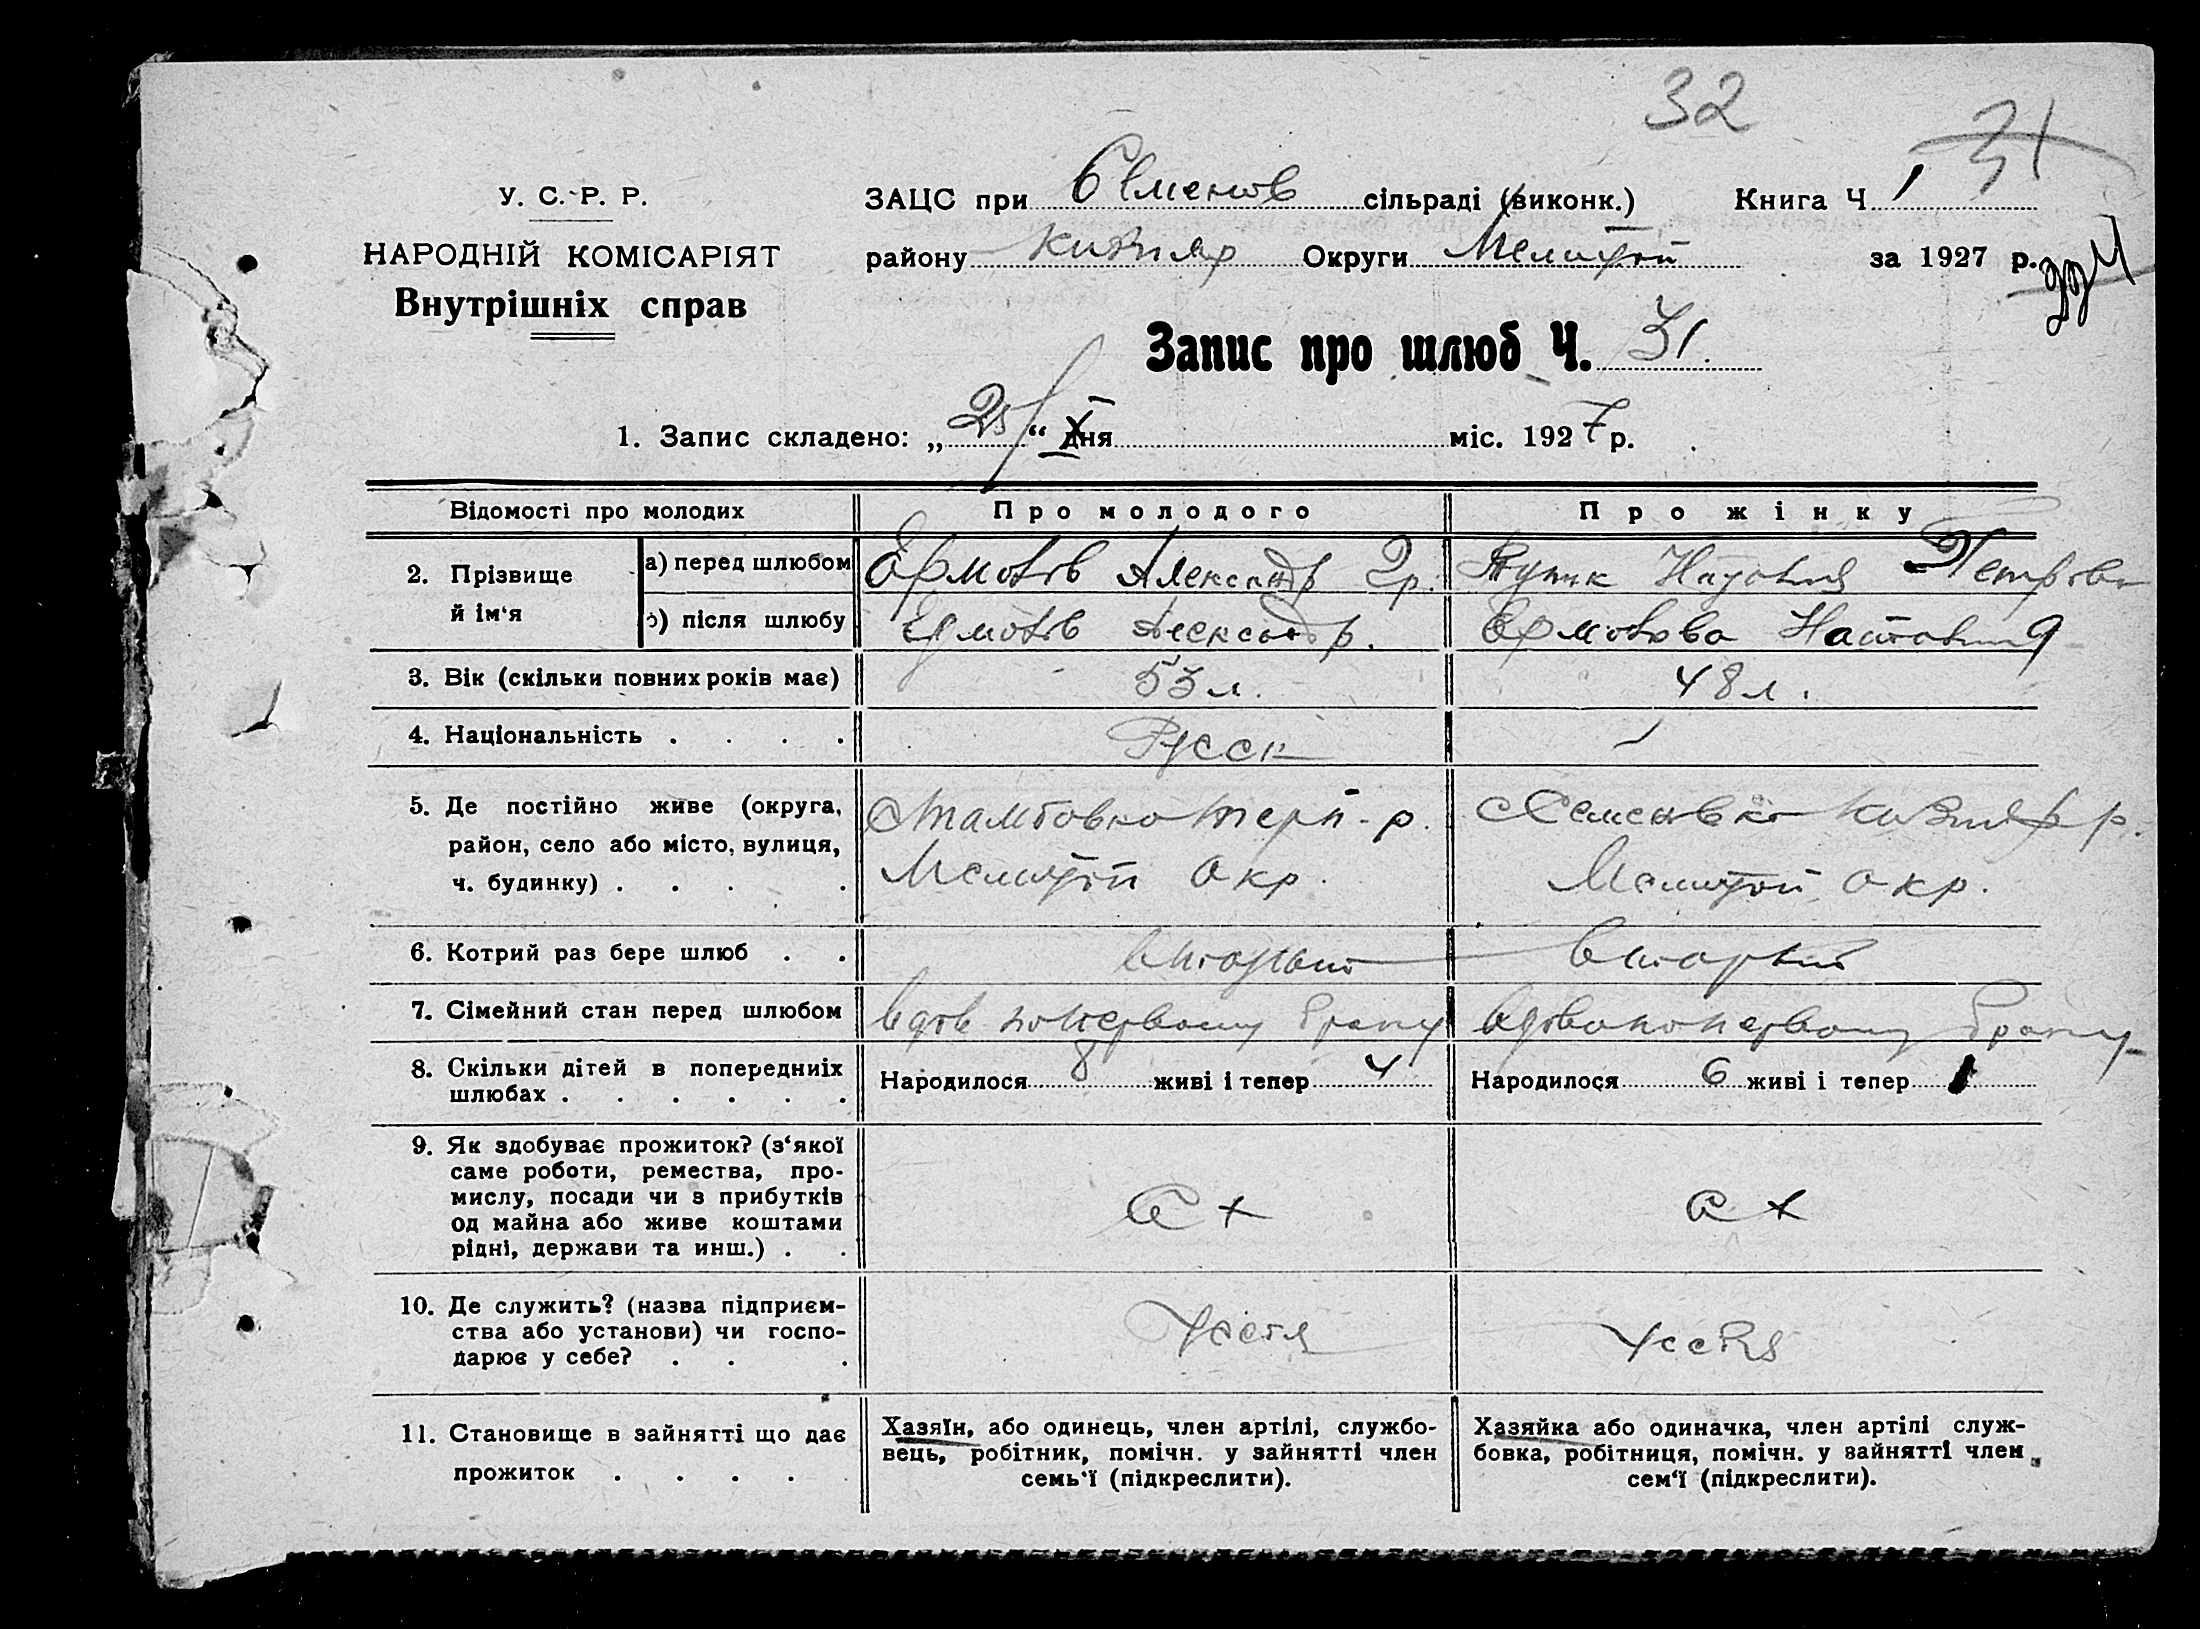 32
31
У. С. Р. Р.
ЗАЦС при Семенов сільраді (виконк.) Книга Ч. 1
НАРОДНІЙ КОМІСАРІЯТ
району Кизияр Округи Мелитоп за 1927 р.
Внутрішніх справ
Запис про шлюб Ч. 31.
1. Запис складено: „25“ X дня міс. 1927 р.
Відомості про молодих Про молодого Про жінку
2. Прізвище й ім‘я
а) перед шлюбом Александр Гр. Петровн
б) після шлюбу Александр.
3. Вік (скільки повних років має) 53 л. 48 л.
4. Національність . . . . Русск
5. Де постійно живе (округа, Тамбовка Терп-р. с Семеновка Кизияр р.
район, село або місто, вулиця, Мелитоп окр. Мелитоп окр.
ч. будинку) . . . .
6. Котрий раз бере шлюб . . вторый вторый
7. Сімейний стан перед шлюбом вдов по первому браку вдова по первому браку
8. Скільки дітей в попередниіх Народилося 8 живі і тепер 4 Народилося 6 живі і тепер 1
шлюбах . . . . . .
9. Як здобуває прожиток? (з‘якої
саме роботи, ремества, про-
мислу, посади чи з прибутків с х с х
од майна або живе коштами
рідні, держави та инш.) . .
10. Де служить? (назва підприєм-
ства або установи) чи госпо- У себя У себя
дарює у себе? . . .
11. Становище в зайнятті що дає
прожиток . . . .
Хазяїн, або одинець, член артілі, службо-
вець, робітник, помічн. у зайнятті член
семь‘ї (підкреслити).
Хазяйка або одиначка, член артілі служ-
бовка, робітниця, помічн. у зайнятті член
сем‘ї (підкреслити).